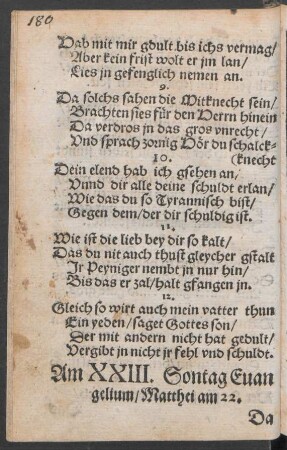 180
Hab mit mir gdult bis ichs vermag/
Aber kein frist wolt er jm lan/
Lies jn gefenglich nemen an.
9.
Da solchs sahen die Mitknecht sein/
Brachten sies für den Herrn hinein
Da verdros jn das gros vnrecht/
Vnd sprach zornig Hör du schalck-
(knecht
10.
Dein elend hab ich gsehen an/
Vnnd dir alle deine schuldt erlan/
Wie das du so Tyrannisch bist/
Gegen dem/der dir schuldig ist.
11.
Wie ist die lieb bey dir so kalt/
Das du nit auch thust gleycher gstalt
Ir Peyniger nembt jn nur hin/
Bis das er zal/halt gfangen jn.
12.
Gleich so wirt auch mein vatter thun
Ein yeden/saget Gottes son/
Der mit andern nicht hat gedult/
Vergibt jn nicht jr fehl vnd schuldt.
Am XXIII. Sontag Euan
gelium/Matthei am 22.
Da